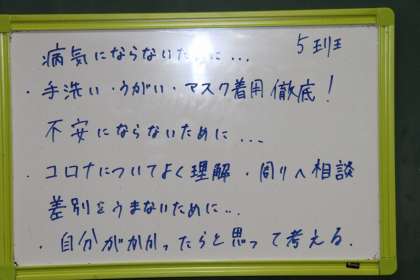 5班
病気にならないために...
・手洗い・うがい・マスク着用徹底!
不安にならないために...
・コロナについてよく理解・周りへ相談
差別をうまないために...
・自分がかかったらと思って考える.